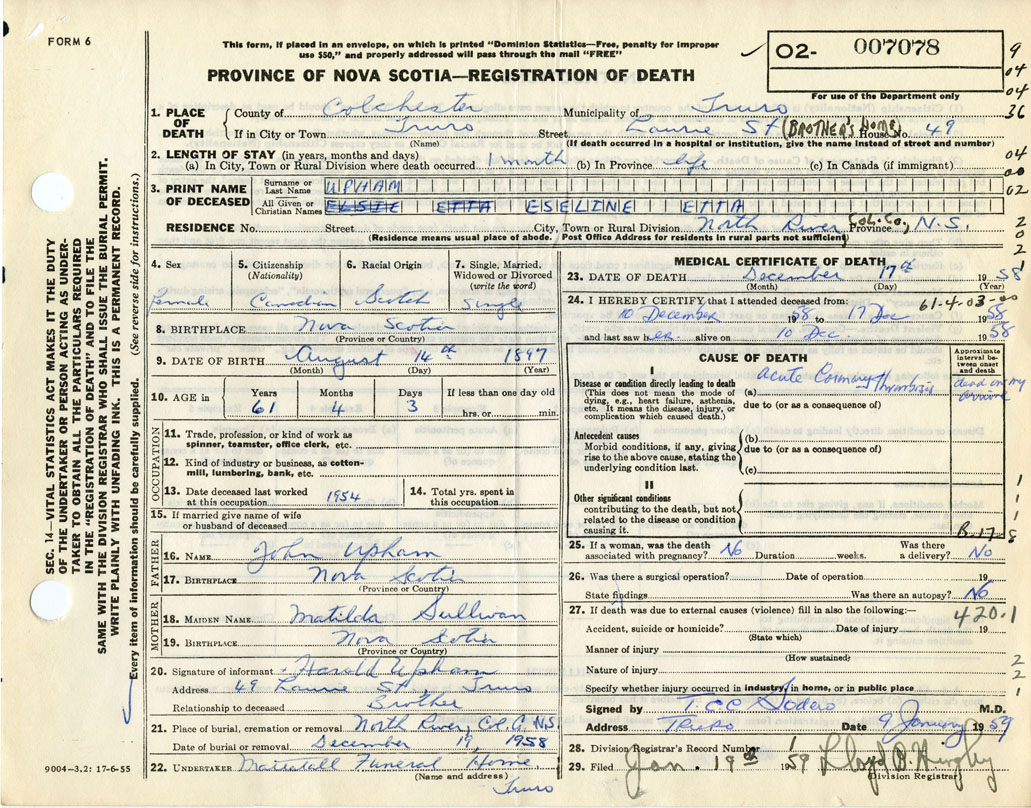 FORM 6
This form, if placed in an envelope, on which is printed "Dominion Statistics—Free, penalty for improper
use $50," and properly addressed will pass through the mail "FREE"
PROVINCE OF NOVA SCOTIA—REGISTRATION OF DEATH
02- 007078
For use of the Department only
9
04
04
36
04
00
02
2
0
2
SEC. 14—VITAL STATISTICS ACT MAKES IT THE DUTY
OF THE UNDERTAKER OR PERSON ACTING AS UNDER-
TAKER TO OBTAIN ALL THE PARTICULARS REQUIRED
IN THE "REGISTRATION OF DEATH" AND TO FILE THE
SAME WITH THE DIVISION REGISTRAR WHO SHALL ISSUE THE BURIAL PERMIT.
WRITE PLAINLY WITH UNFADING INK. THIS IS A PERMANENT RECORD.
Every item of information should be carefully supplied. (See reverse side for instructions.)
1. PLACE OF DEATH
County of Colchester Municipality of Truro
If in City or Town Truro Street Laurie St (BROTHER'S HOME) House No. 49
(Name) (If death occurred in a hospital or institution, give the name instead of street and number)
2. LENGTH OF STAY (in years, months and days)
(a) In City, Town or Rural Division where death occurred 1 month (b) In Province life (c) In Canada (if immigrant)
3. PRINT NAME OF DECEASED
Surname or Last Name UPHAM
All Given or Christian Names ELSIE ETTA ESELINE ETTA
RESIDENCE No. Street City, Town or Rural Division North River Col. Co, Province N.S.
(Residence means usual place of abode. Post Office Address for residents in rural parts not sufficient)
4. Sex
female
5. Citizenship
(Nationality)
Canadian
6. Racial Origin
Scotch
7. Single, Married,
Widowed or Divorced
(write the word)
Single
8. BIRTHPLACE Nova Scotia
(Province or Country)
9. DATE OF BIRTH August 14th 1897
(Month) (Day) (Year)
10. AGE in
Years Months Days If less than one day old
61 4 3 hrs. or min.
OCCUPATION
11. Trade, profession, or kind of work as
spinner, teamster, office clerk, etc.
12. Kind of industry or business, as cotton-
mill, lumbering, bank, etc.
13. Date deceased last worked
at this occupation 1954
14. Total yrs. spent in
this occupation
15. If married give name of wife
or husband of deceased
FATHER
16. NAME John Upham
17. BIRTHPLACE Nova Scotia
(Province or Country)
MOTHER
18. MAIDEN NAME Matilda Sullivan
19. BIRTHPLACE Nova Scotia
(Province or Country)
20. Signature of informant Harold Upham
Address 49 Laurie St., Truro
Relationship to deceased Brother
21. Place of burial, cremation or removal North River, Col. C. N.S.
Date of burial or removal December 19, 1958
22. UNDERTAKER Mattatall Funeral Home,
(Name and address)
Truro
9004—3,2: 17-6-55
MEDICAL CERTIFICATE OF DEATH
23. DATE OF DEATH December 17th 1958
(Month) (Day) (Year)
24. I HEREBY CERTIFY that I attended deceased from: 61-4-03-00
10 December 1958 to 17 Dec 1958
and last saw her alive on 10 Dec. 1958
CAUSE OF DEATH
Approximate
interval be-
tween onset
and death
I
Disease or condition directly leading to death
(This does not mean the mode of
dying, e.g., heart failure, asthenia,
etc. It means the disease, injury, or
complication which caused death.)
(a) Acute Coronary Thrombosis
dead on my
arrival
due to (or as a consequence of)
Antecedent causes
Morbid conditions, if any, giving
rise to the above cause, stating the
underlying condition last.
(b)
due to (or as a consequence of)
(c)
II
Other significant conditions
contributing to the death, but not
related to the disease or condition
causing it.
1
1
1
8
B-17
25. If a woman, was the death
associated with pregnancy? No Duration weeks. Was there
a delivery? No
26. Was there a surgical operation? Date of operation 19
State findings Was there an autopsy? No
27. If death was due to external causes (violence) fill in also the following:—
420.1
Accident, suicide or homicide? Date of injury 19
(State which)
Manner of injury
(How sustained)
Nature of injury
2
2
1
Specify whether injury occurred in industry, in home, or in public place
Signed by T.C.C. Sodero M.D.
Address Truro Date 9 January 1959
28. Division Registrar's Record Number 1
29. Filed Jan. 19th 1959 Lloyd
(Division Registrar)